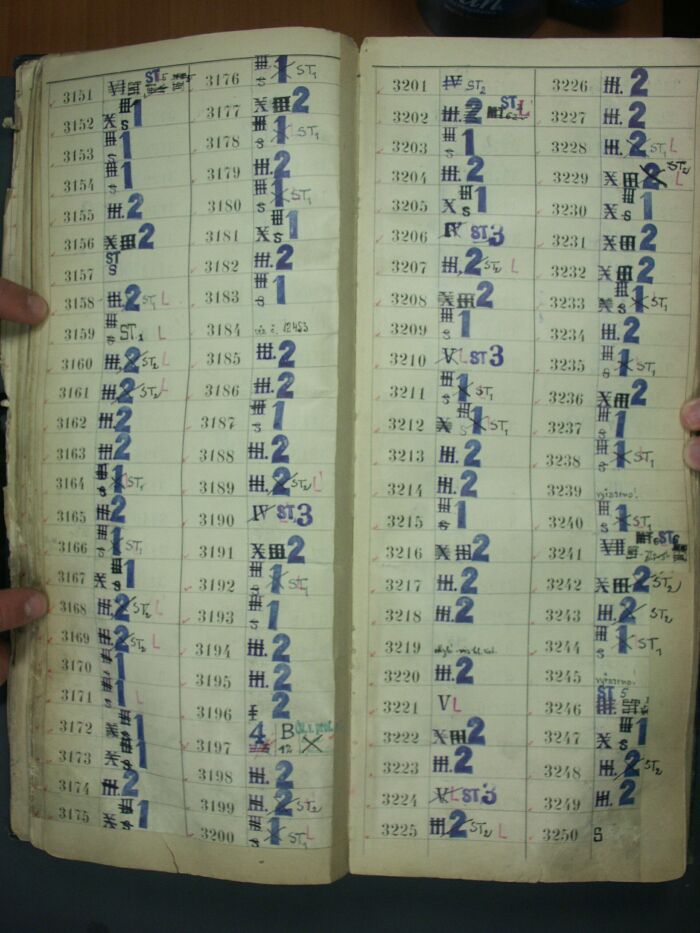 3151 ST 5
3152 X III S 1
3153 III S 1
3154 III S 1
3155 III. 2
3156 X III 2
3157 ST S
3158 III. 2 ST1 L
3159 III S ST1 L
3160 III. 2 ST2 L
3161 III. 2 ST2 L
3162 III. 2
3163 III. 2
3164 III S 1 ST1
3165 III. 2
3166 III S 1 ST1
3167 X III S 1
3168 III. 2 ST2 L
3169 III. 2 ST2 L
3170 III S 1
3171 III S 1 L
3172 X III S 1
3173 X III S 1
3174 III. 2
3175 X III S 1
3176 III S 1 ST1
3177 X III 2
3178 III S 1 ST1
3179 III. 2
3180 III S 1 ST1
3181 X III S 1
3182 III. 2
3183 III S 1
3184 viz č. 12453
3185 III. 2
3186 III. 2
3187 III S 1
3188 III. 2
3189 III. 2 ST2 L
3190 IV ST 3
3191 X III 2
3192 III S 1 ST1
3193 III S 1
3194 III. 2
3195 III. 2
3196 I 2
3197 4 B 12
3198 III. 2
3199 III. 2 ST2 L
3200 III S 1 ST1 L
3201 IV ST2
3202 III. 2 ST L
3203 III S 1
3204 III. 2
3205 X III S 1
3206 IV ST 3
3207 III. 2 ST2 L
3208 X III 2
3209 III S 1
3210 V L ST 3
3211 III S 1 ST1
3212 X III S 1 ST1
3213 III. 2
3214 III. 2
3215 III S 1
3216 X III 2
3217 III. 2
3218 III. 2
3219
3220 III. 2
3221 V L
3222 X III 2
3223 III. 2
3224 V. L ST 3
3225 III. 2 ST2 L
3226 III. 2
3227 III. 2
3228 III. 2 ST1 L
3229 X III 2 ST2 L
3230 X III S 1
3231 X III 2
3232 X III 2
3233 X III S 1 ST1
3234 III. 2
3235 III S 1 ST1
3236 X III 2
3237 III S 1
3238 III S 1 ST1
3239
3240 III S 1 ST1
3241 VII ST6
3242 X III 2 ST2
3243 III. 2 ST2
3244 III S 1 ST1
3245
3246 ST 5 III.
3247 X III S 1
3248 III. 2 ST2
3249 III. 2
3250 S